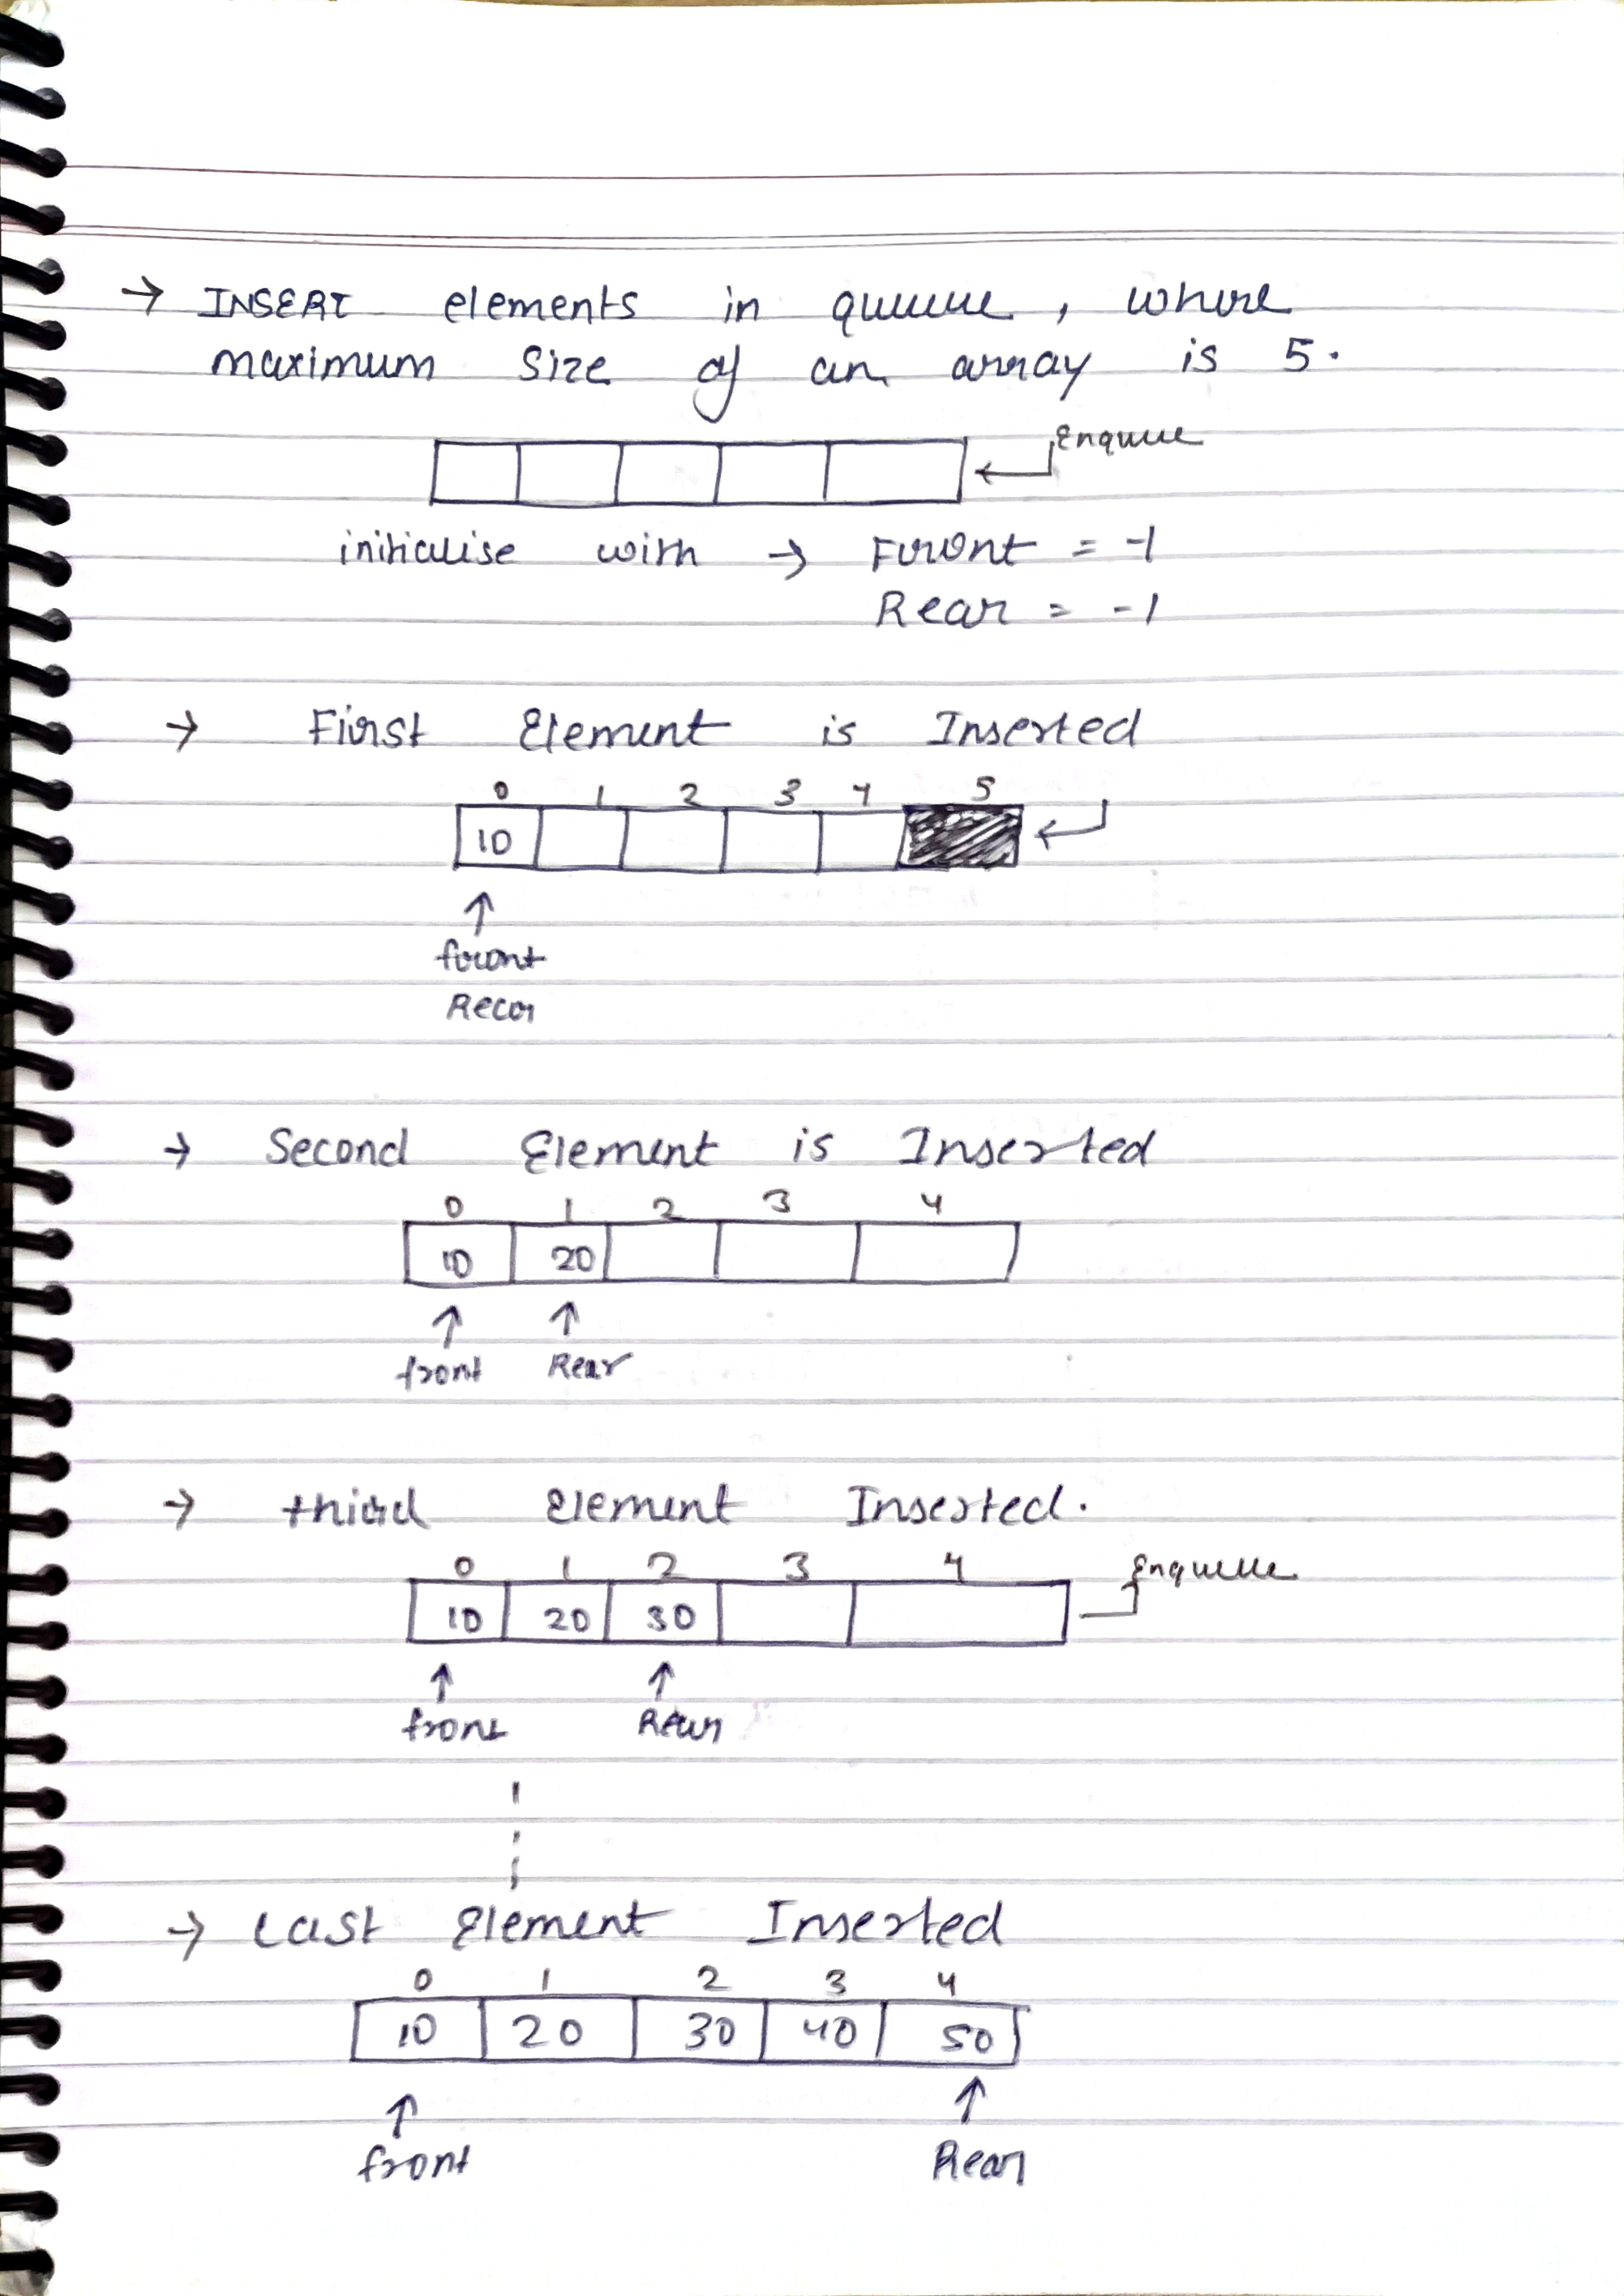 → INSERT elements in queue, where
maximum size of an array is 5.
Enqueue
initialise with → Front = -1
Rear = -1
→ First Element is Inserted
0 1 2 3 4 5
10
↑
front
Rear
→ Second Element is Inserted
0 1 2 3 4
10 20
↑ ↑
front Rear
→ third Element Inserted.
0 1 2 3 4 Enqueue
10 20 30
↑ ↑
front Rear
→ Last Element Inserted
0 1 2 3 4
10 20 30 40 50
↑ ↑
front Rear